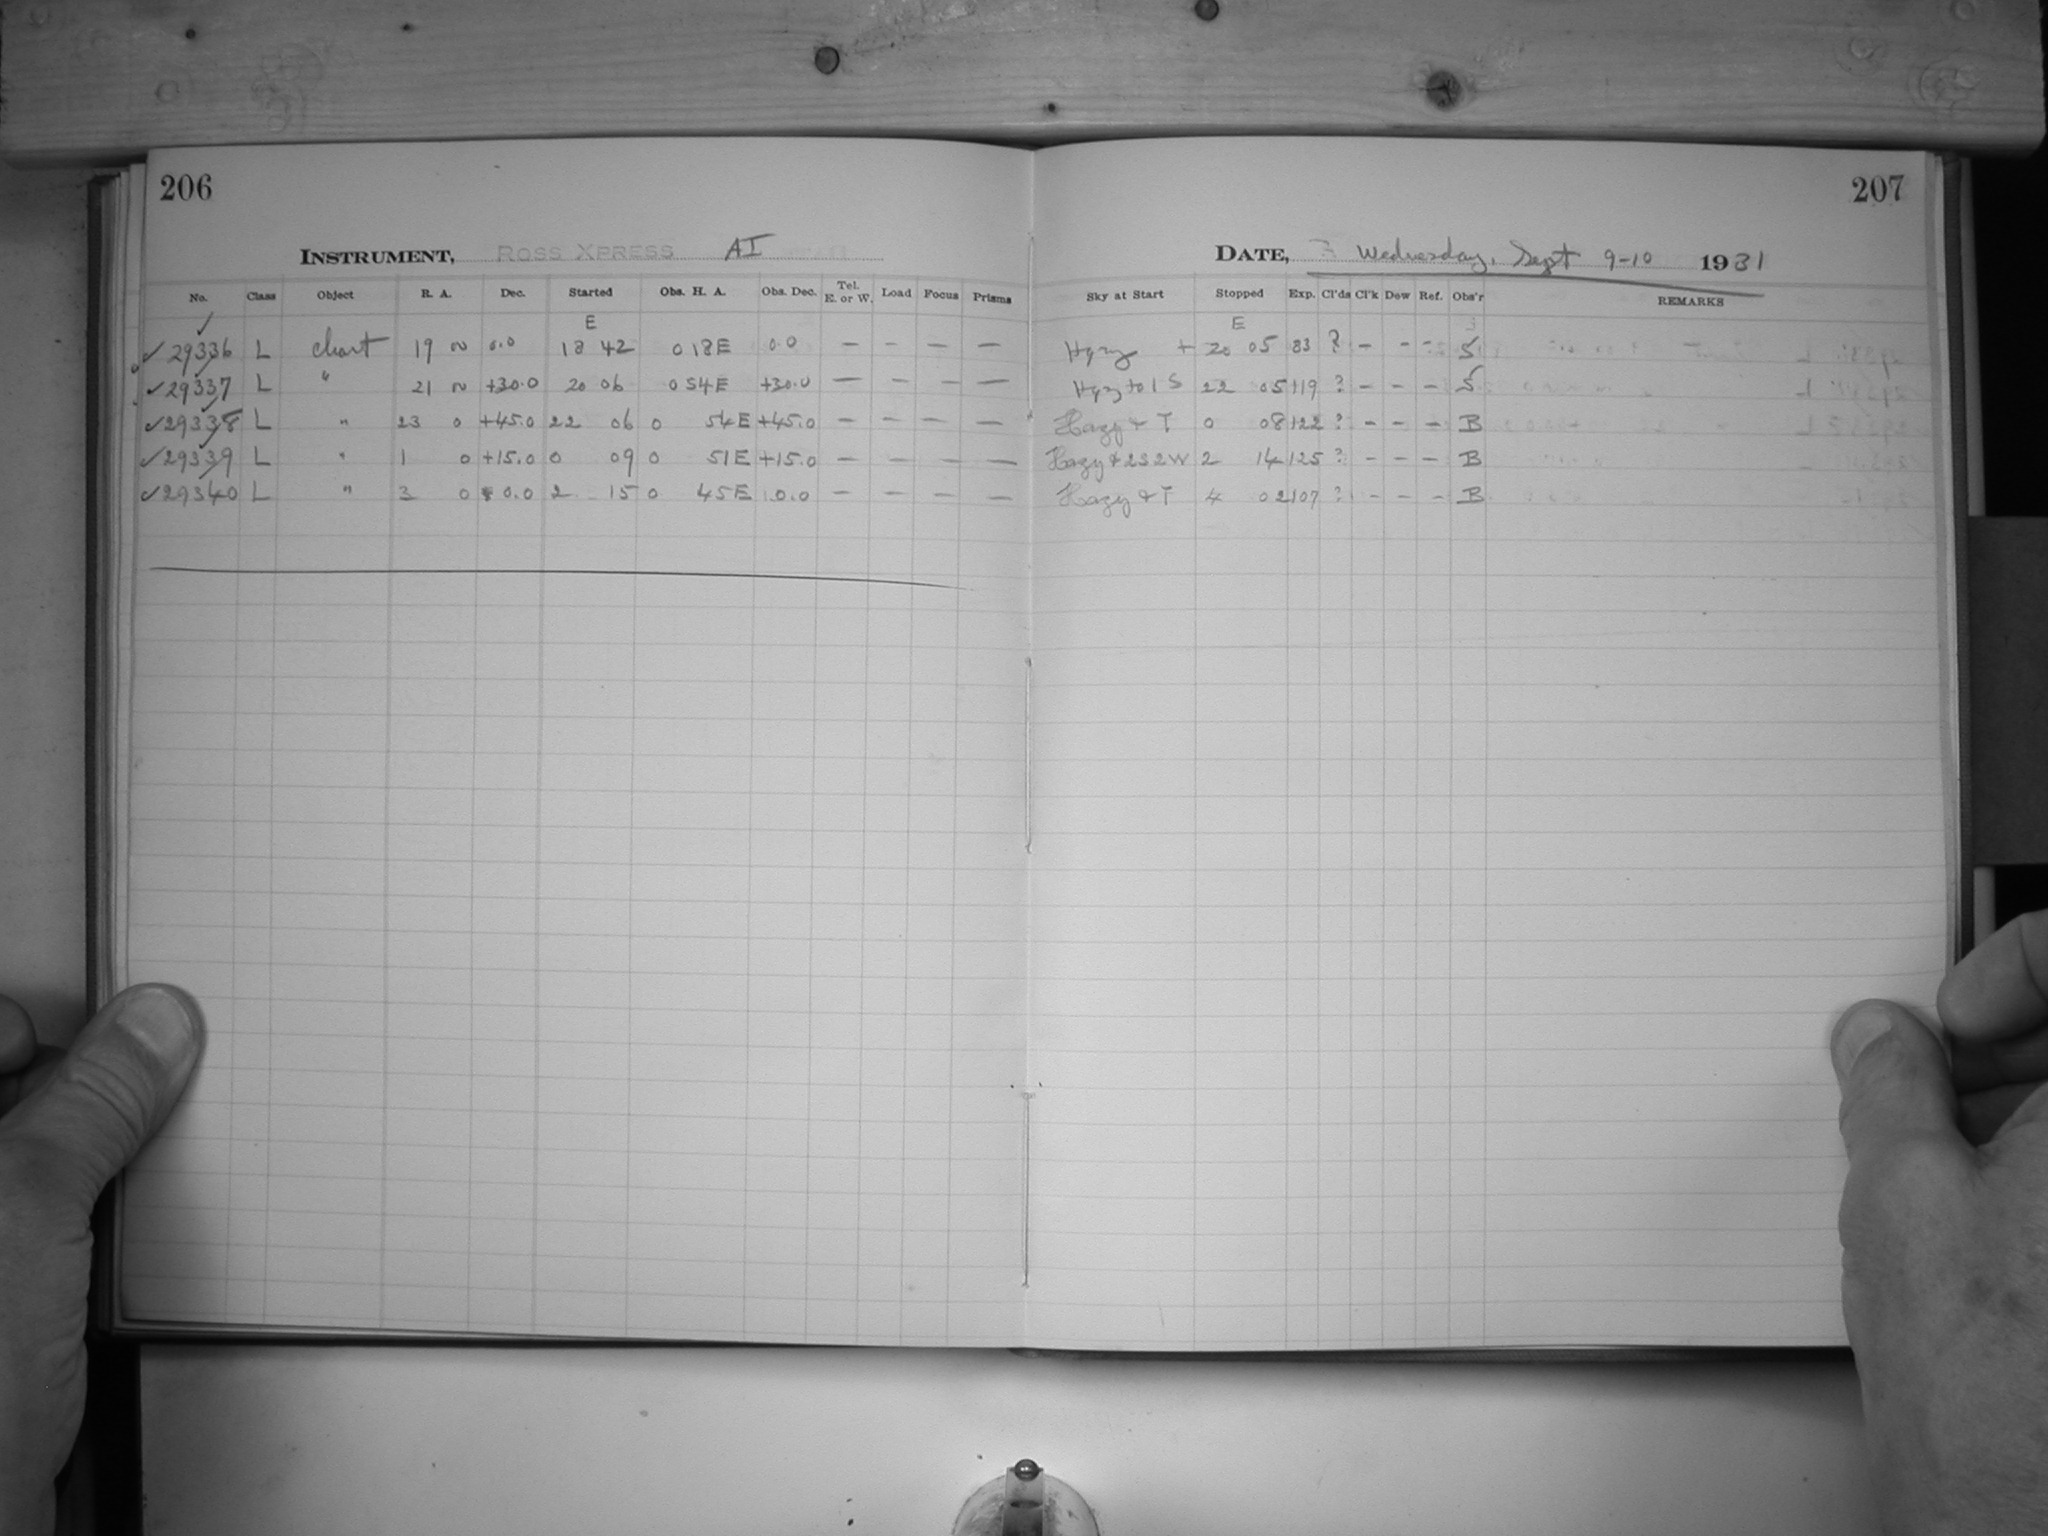 206
207
INSTRUMENT, ROSS XPRESS AI
DATE, Wednesday, Sept 9-10 1931
No. Class Object R. A. Dec. Started Obs. H. A. Obs. Dec. Tel. E. or W. Load Focus Prisms Sky at Start Stopped Exp. Cl'ds Cl'k Dew Ref. Obs'r REMARKS
E E
✓ 29336 L chart 19 0.0 18 42 0 18E 0.0 — - — — Hazy + 20 05 83 ? - - - S
✓ 29337 L " 21 +30.0 20 06 0 54E +30.0 — - — — Hazy to 1 S 22 05 119 ? - - - S
✓ 29338 L " 23 0 +45.0 22 06 0 54E +45.0 — - — — Hazy & T 0 08 122 ? - - - B
✓ 29339 L " 1 0 +15.0 0 09 0 51E +15.0 — - — — Hazy + 2S2W 2 14 125 ? - - - B
✓ 29340 L " 3 0 0.0 2 15 0 45E 0.0 — - — — Hazy & T 4 02 107 ? - - - B